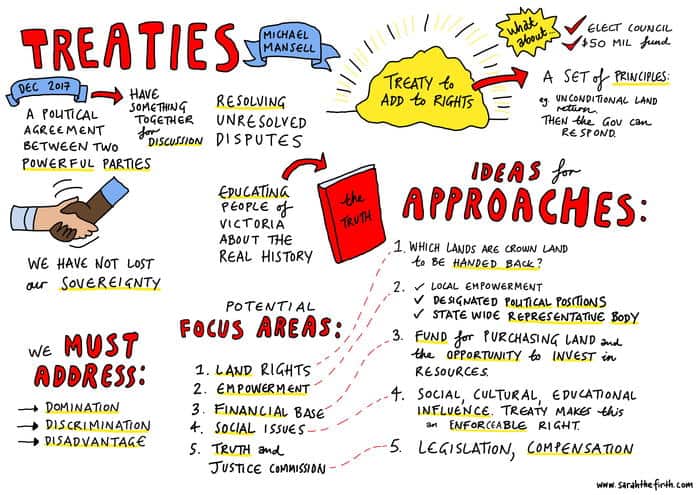 TREATIES
MICHAEL
MANSELL
DEC 2017
A POLITICAL
AGREEMENT
BETWEEN TWO
POWERFUL PARTIES
HAVE
SOMETHING
TOGETHER
for
DISCUSSION
RESOLVING
UNRESOLVED
DISPUTES
TREATY to
ADD to RIGHTS
What
about...
ELECT COUNCIL
$50 MIL fund
A SET of PRINCIPLES:
eg UNCONDITIONAL LAND
return.
THEN the GOV can
RESPOND.
WE HAVE NOT LOST
our SOVEREIGNTY
EDUCATING
PEOPLE of
VICTORIA
ABOUT THE
REAL HISTORY
the
TRUTH
WE MUST
ADDRESS:
→ DOMINATION
→ DISCRIMINATION
→ DISADVANTAGE
POTENTIAL
FOCUS AREAS:
1. LAND RIGHTS
2. EMPOWERMENT
3. FINANCIAL BASE
4. SOCIAL ISSUES
5. TRUTH and
JUSTICE COMMISSION
IDEAS for
APPROACHES:
1. WHICH LANDS ARE CROWN LAND
to BE HANDED BACK?
2. ✓ LOCAL EMPOWERMENT
✓ DESIGNATED POLITICAL POSITIONS
✓ STATE WIDE REPRESENTATIVE BODY
3. FUND for PURCHASING LAND and
the OPPORTUNITY to INVEST in
RESOURCES.
4. SOCIAL, CULTURAL, EDUCATIONAL
INFLUENCE. TREATY MAKES this
an ENFORCEABLE RIGHT.
5. LEGISLATION, COMPENSATION
www.sarahthefirth.com